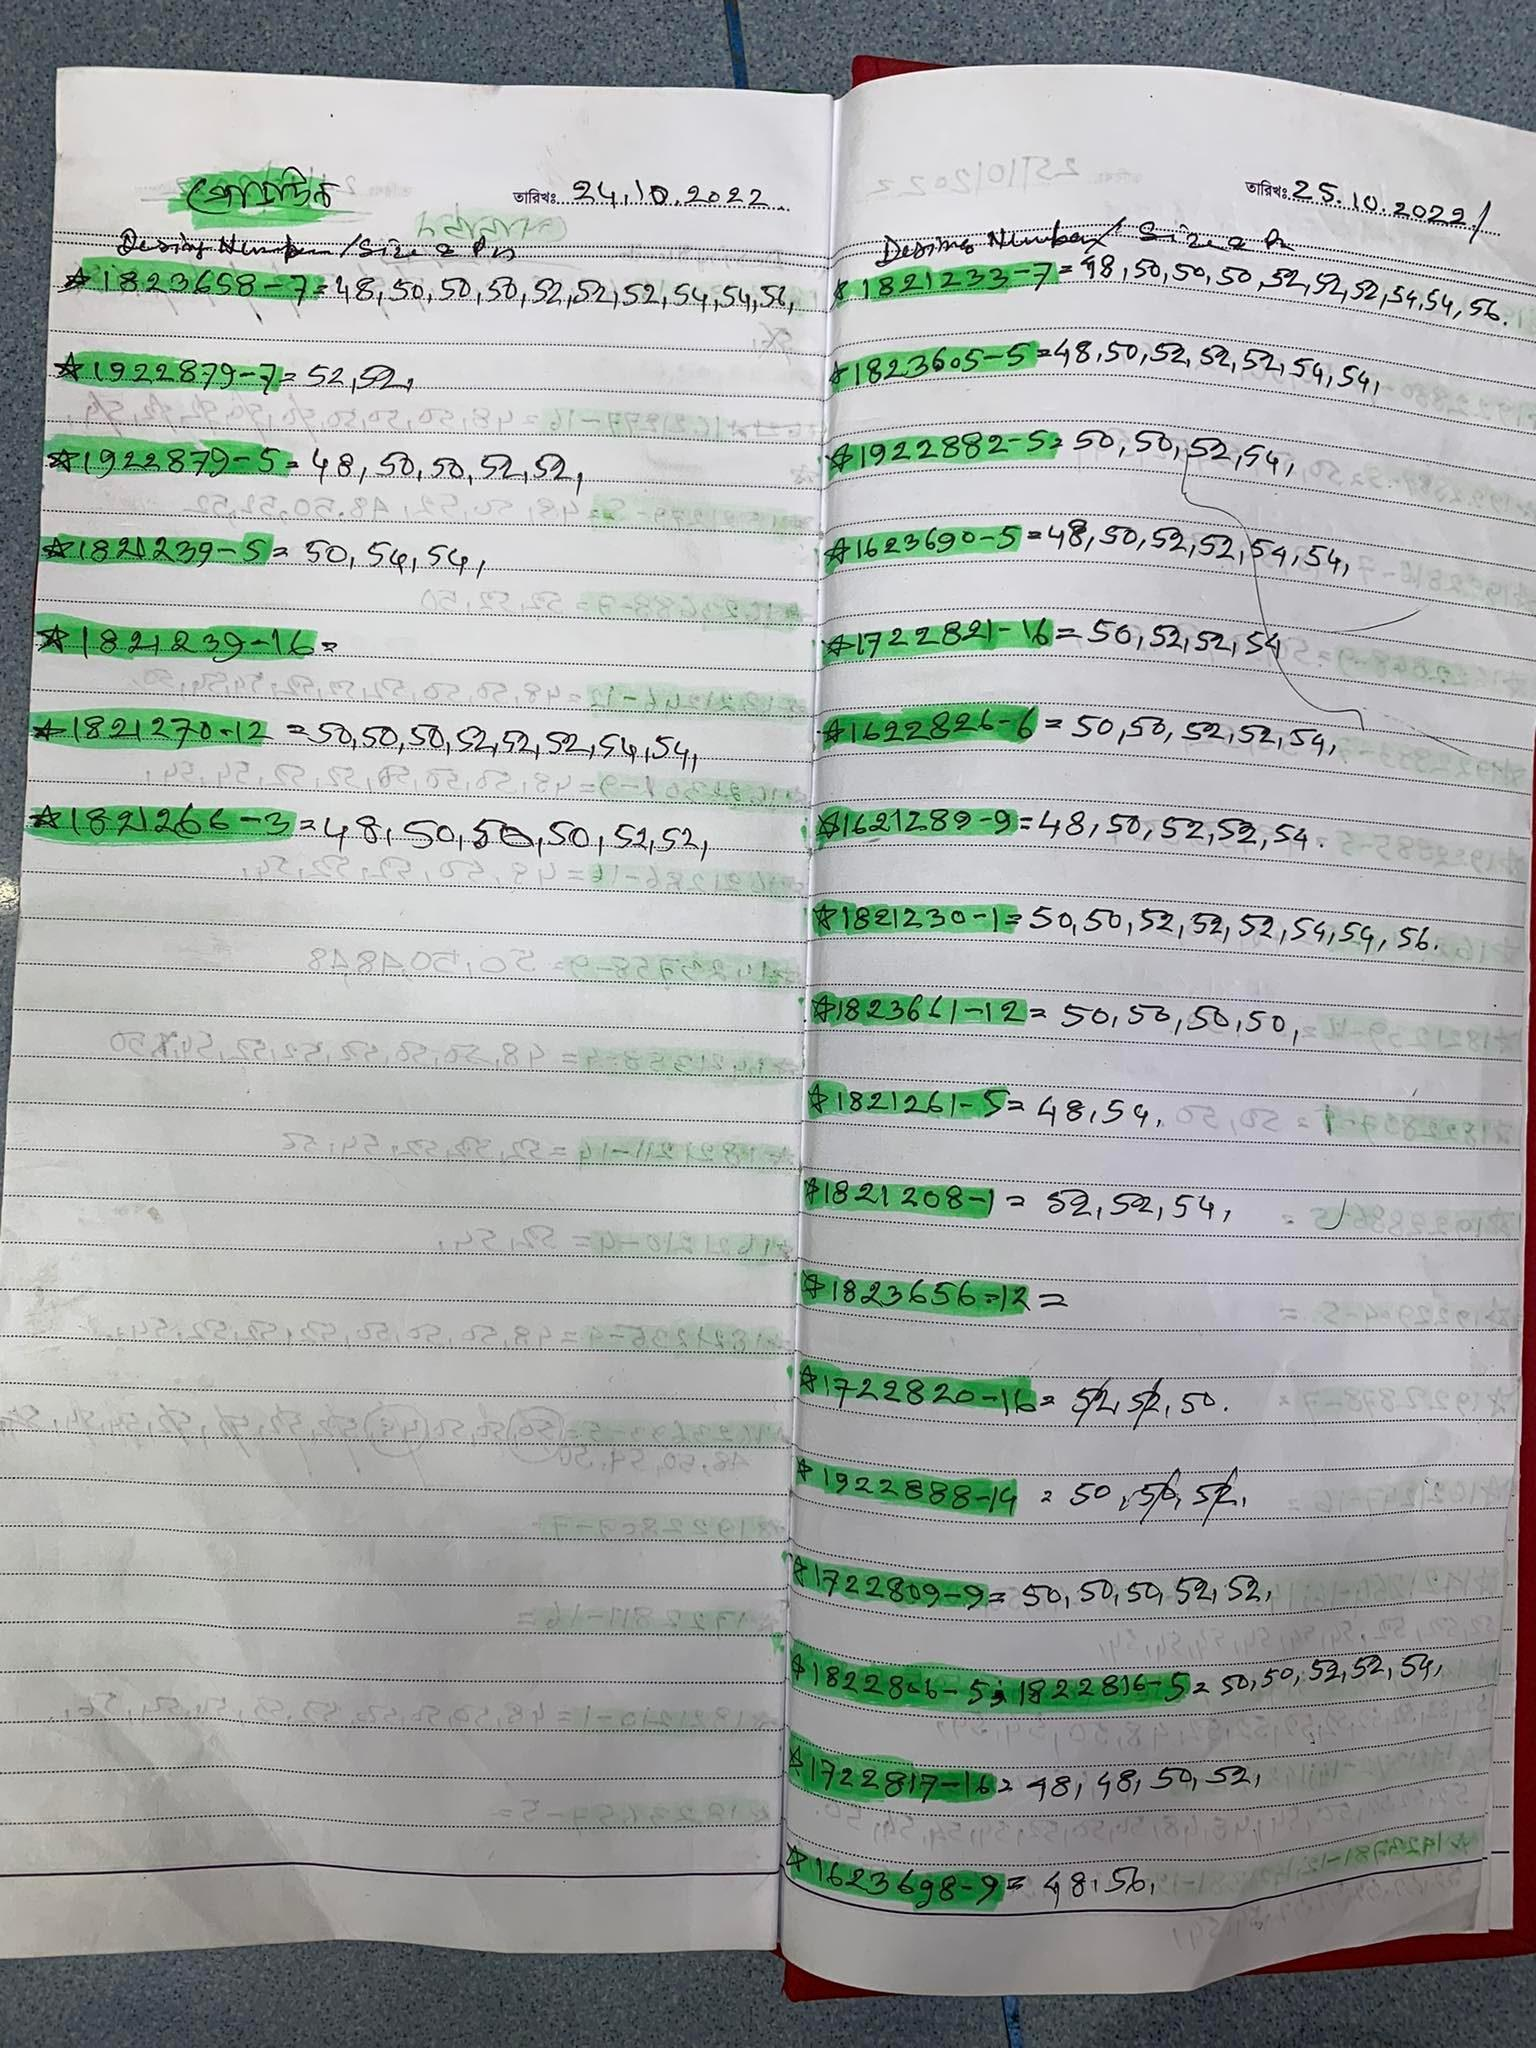 তারিখঃ 24.10.2022
Desing Number/Size & Pn
☆1823658-7=48,50,50,50,52,52,52,54,54,56,
☆1922879-7=52,52,
☆1922879-5=48,50,50,52,52,
☆1821239-5=50,54,54,
☆1821239-16=
☆1821270-12=50,50,50,52,52,52,54,54,
☆1821266-3=48,50,50,50,52,52,
তারিখঃ 25.10.2022/
Desing Number/Size & Pn
☆1821233-7=48,50,50,50,52,52,52,54,54,56.
☆1823605-5=48,50,52,52,52,54,54,
☆1922882-5=50,50,52,54,
☆1623690-5=48,50,52,52,54,54,
☆1722821-16=50,52,52,54
☆1622826-6=50,50,52,52,54,
☆1621289-9=48,50,52,52,54.
☆1821230-1=50,50,52,52,52,54,54,56.
☆1823661-12=50,50,50,50,
☆1821261-5=48,54,
☆1821208-1=52,52,54,
☆1823656-12=
☆1722820-16=52,52,50.
☆1922888-14=50,50,52,
☆1722809-9=50,50,50,52,52,
☆1822806-5,1822816-5=50,50,52,52,54,
☆1722817-16=48,48,50,52,
☆1623698-9=48,56,